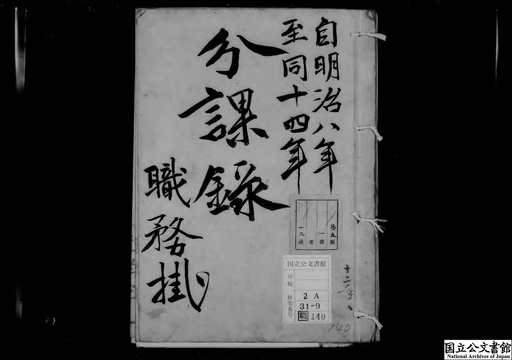 自明治八年
至同十四年
分課録
職務掛
国立公文書館
分類
排架番号
2 A
31-9
職 140
140
国立公文書館
National Archives of Japan